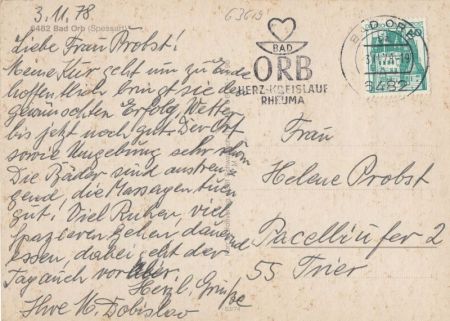 3.11.78.
6482 Bad Orb (Spessart)
Liebe Frau Probst!
Meine Kur geht um zu Ende
hoffentlich bringt sie den
gewünschten Erfolg, Wetter
bis jetzt noch gut. Der Ort
sowie Umgebung sehr schön
Die Bäder sind anstren-
gend, die Massagen tuen
gut. Viel Ruhen, viel
spazieren gehen dauernd
essen, dabei geht der
Tag auch vorüber.
Herzl. Grüße
Ihre M. Dobislav
63619
BAD
ORB
HERZ-KREISLAUF
RHEUMA
BAD ORB
6482
Frau
Helene Probst
Pacelliufer 2
55 Trier